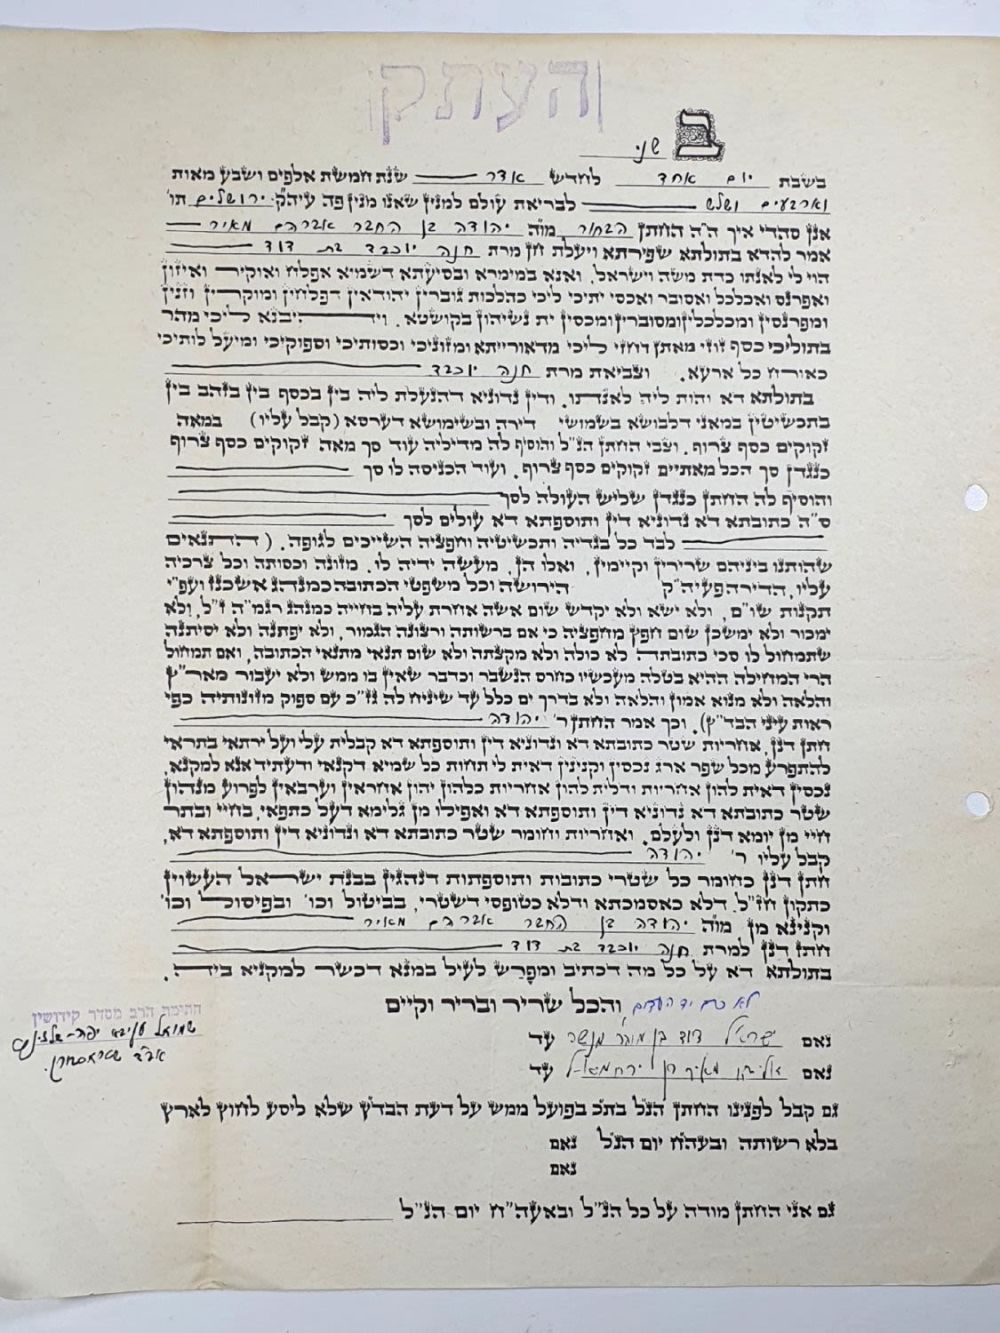 העתק
ב שני
בשבת יום אחד לחדש אדר שנת חמשת אלפים ושבע מאות
וארבעים ושלש לבריאת עולם למנין שאנו מנין פה עיהק ירושלים תו'
אנן סהדי איך ה"ה החתן הבחור מוה יהודה בן החבר אברהם מאיר
אמר להדא בתולתא שפירתא ויעלת חן מרת חנה יוכבד בת דוד
הוי לי לאנתו כדת משה וישראל, ואנא במימרא ובסיעתא דשמיא אפלח ואוקיר ואיזון
ואפרנס ואכלכל ואסובר ואכסי יתיכי ליכי כהלכות גוברין יהודאין דפלחין ומוקרין וזנין
ומפרנסין ומכלכלין ומסוברין ומכסין ית נשיהון בקושטא. ויהיבנא ליכי מהר
בתוליכי כסף זוזי מאתן דחזי ליכי מדאורייתא ומזוניכי וכסותיכי וספוקיכי ומיעל לותיכי
כאורח כל ארעא. וצביאת מרת חנה יוכבד
בתולתא דא והות ליה לאנתו. ודין נדוניא דהנעלת ליה בין בכסף בין בזהב בין
בתכשיטין במאני דלבושא בשמושי דירה ובשימושא דערסא (קבל עליו) במאה
זקוקים כסף צרוף. וצבי החתן הנ"ל והוסיף לה מדיליה עוד סך מאה זקוקים כסף צרוף
כנגדן סך הכל מאתיים זקוקים כסף צרוף. ועוד הכניסה לו סך
והוסיף לה החתן כנגדן שליש העולה לסך
ס"ה כתובתא דא נדוניא דין ותוספתא דא עולים לסך
לבד כל בגדיה ותכשיטיה וחפציה השייכים לגופה. (התנאים
שהותנו ביניהם שרירין וקיימין, ואלו הן, מעשה ידיה לו. מזונה וכסותה וכל צרכיה
עליו, הדירה פעיה"ק הירושה וכל משפטי הכתובה כמנהג אשכנז ועפ"י
תקנות שו"ם, ולא ישא ולא יקדש שום אשה אחרת עליה בחייה כמנהג רגמ"ה ז"ל, ולא
ימכור ולא ימשכן שום חפץ מחפציה כי אם ברשותה ורצונה הגמור, ולא יפתנה ולא יסיתנה
שתמחול לו סכי כתובתה לא כולה ולא מקצתה ולא שום תנאי מתנאי הכתובה, ואם תמחול
הרי המחילה ההיא בטלה מעכשיו כחרס הנשבר וכדבר שאין בו ממש ולא יעבור מאר"ץ
והלאה ולא מנוא אמון והלאה ולא בדרך ים כלל עד שיניח לה גז"כ עם ספוק מזונותיה כפי
ראות עיני הבד"ץ). וכך אמר החתן ר' יהודה
חתן דנן, אחריות שטר כתובתא דא ונדוניא דין ותוספתא דא קבלית עלי ועל ירתאי בתראי
להתפרע מכל שפר ארג נכסין וקנינין דאית לי תחות כל שמיא דקנאי ודעתיד אנא למקנא,
נכסין דאית להון אחריות ודלית להון אחריות כלהון יהון אחראין וערבאין לפרוע מנהון
שטר כתובתא דא נדוניא דין ותוספתא דא ואפילו מן גלימא דעל כתפאי, בחיי ובתר
חיי מן יומא דנן ולעלם. ואחריות וחומר שטר כתובתא דא ונדוניא דין ותוספתא דא,
קבל עליו ר' יהודה
חתן דנן כחומר כל שטרי כתובות ותוספתות דנהגין בבנת ישראל העשוין
כתקון חז"ל. דלא כאסמכתא ודלא כטופסי דשטרי, בביטול וכו' ובפיסול וכו'
וקנינא מן מוה יהודה בן החבר אברהם מאיר
חתן דנן למרת חנה יוכבד בת דוד
בתולתא דא על כל מה דכתיב ומפרש לעיל במנא דכשר למקניא ביה.
והכל שריר ובריר וקיים
נאם ישראל דוד בן מוהר מנשה עד
נאם עד
חתימת הרב מסדר קידושין
שמואל
גם קבל לפנינו החתן הנ"ל בת"כ בפועל ממש על דעת הבד"ץ שלא ליסע לחוץ לארץ
בלא רשותה ובעה"ח יום הנ"ל נאם
נאם
גם אני החתן מודה על כל הנ"ל ובאעה"ח יום הנ"ל